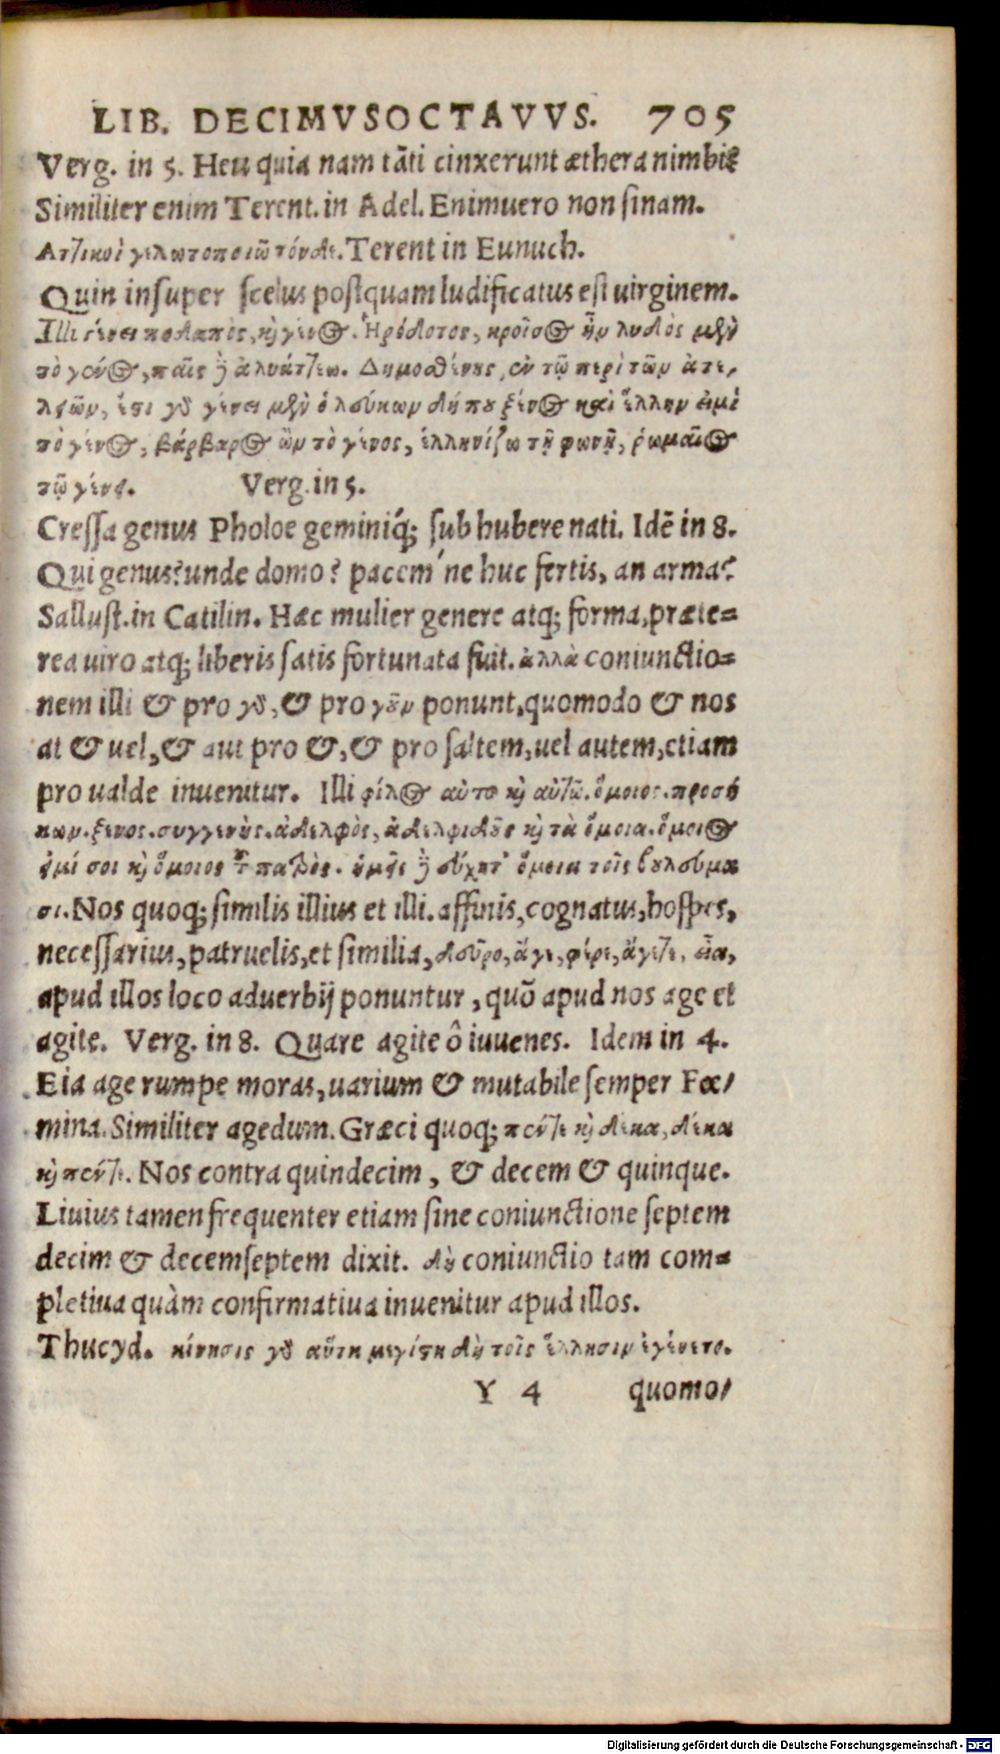 LIB. DECIMVSOCTAVVS. 705
Verg. in 5. Heu quia nam tāti cinxerunt æthera nimbi?
Similiter enim Terent. in Adel. Enimuero non sinam.
Ατ̓ικοὶ γελωτοποιῶ τόνδε. Terent in Eunuch.
Quin insuper scelus postquam ludificatus est uirginem.
Illi γένει καὶ γένος. Ηρόδοτος, κροῖσος ἦν λυδὸς μὲν
τὸ γένος, παῖς δὲ ἀλυάττεω. Δημοσθένης, ἐν τῷ περὶ τῶν ἀτε,
λειῶν, ἔστι γὰρ γένει μὲν ὁ λεύκων δή που ξένος καὶ ἕλλην εἰμὶ
τὸ γένος, βάρβαρος ὢν τὸ γένος, ἑλληνίζω τῇ φωνῇ, ῥωμαῖος
τῷ γένει. Verg. in 5.
Cressa genus Pholoe geminiq́; sub hubere nati. Idē in 8.
Qui genus? unde domo? pacem´ne huc fertis, an arma?
Sallust. in Catilin. Hæc mulier genere atq; forma, præte=
rea uiro atq; liberis satis fortunata fuit. ἀλλὰ coniunctio=
nem illi & pro γὰρ, & pro γοῦν ponunt, quomodo & nos
at & uel, & aut pro &, & pro saltem, uel autem, etiam
pro ualde inuenitur. Illi φίλος αὐτοῦ καὶ αὐτῷ. ὅμοιος. προσή
κων. ξένος. συγγενὴς. ἀδελφὸς, ἀδελφιδοῦς καὶ τὰ ὅμοια. ὅμοιος
εἰμί σοι καὶ ὅμοιος τοῦ πατρός. ὑμεῖς δὲ εὔχεσθε ὅμοια τοῖς βουλεύμα
σι. Nos quoq; similis illius et illi. affinis, cognatus, hospes,
necessarius, patruelis, et similia, δεῦρο, ἄγε, φέρε, ἄγετε, εἶα,
apud illos loco aduerbij ponuntur, quō apud nos age et
agite. Verg. in 8. Quare agite ô iuuenes. Idem in 4.
Eia age rumpe moras, uarium & mutabile semper Fœ/
mina. Similiter agedum. Græci quoq; πέντε καὶ δέκα, δέκα
καὶ πέντε. Nos contra quindecim, & decem & quinque.
Liuius tamen frequenter etiam sine coniunctione septem
decim & decemseptem dixit. δὴ coniunctio tam com=
pletiua quàm confirmatiua inuenitur apud illos.
Thucyd. κίνησις γὰρ αὕτη μεγίστη δὴ τοῖς ἕλλησιν ἐγένετο.
Y 4 quomo/
Digitalisierung gefördert durch die Deutsche Forschungsgemeinschaft - DFG